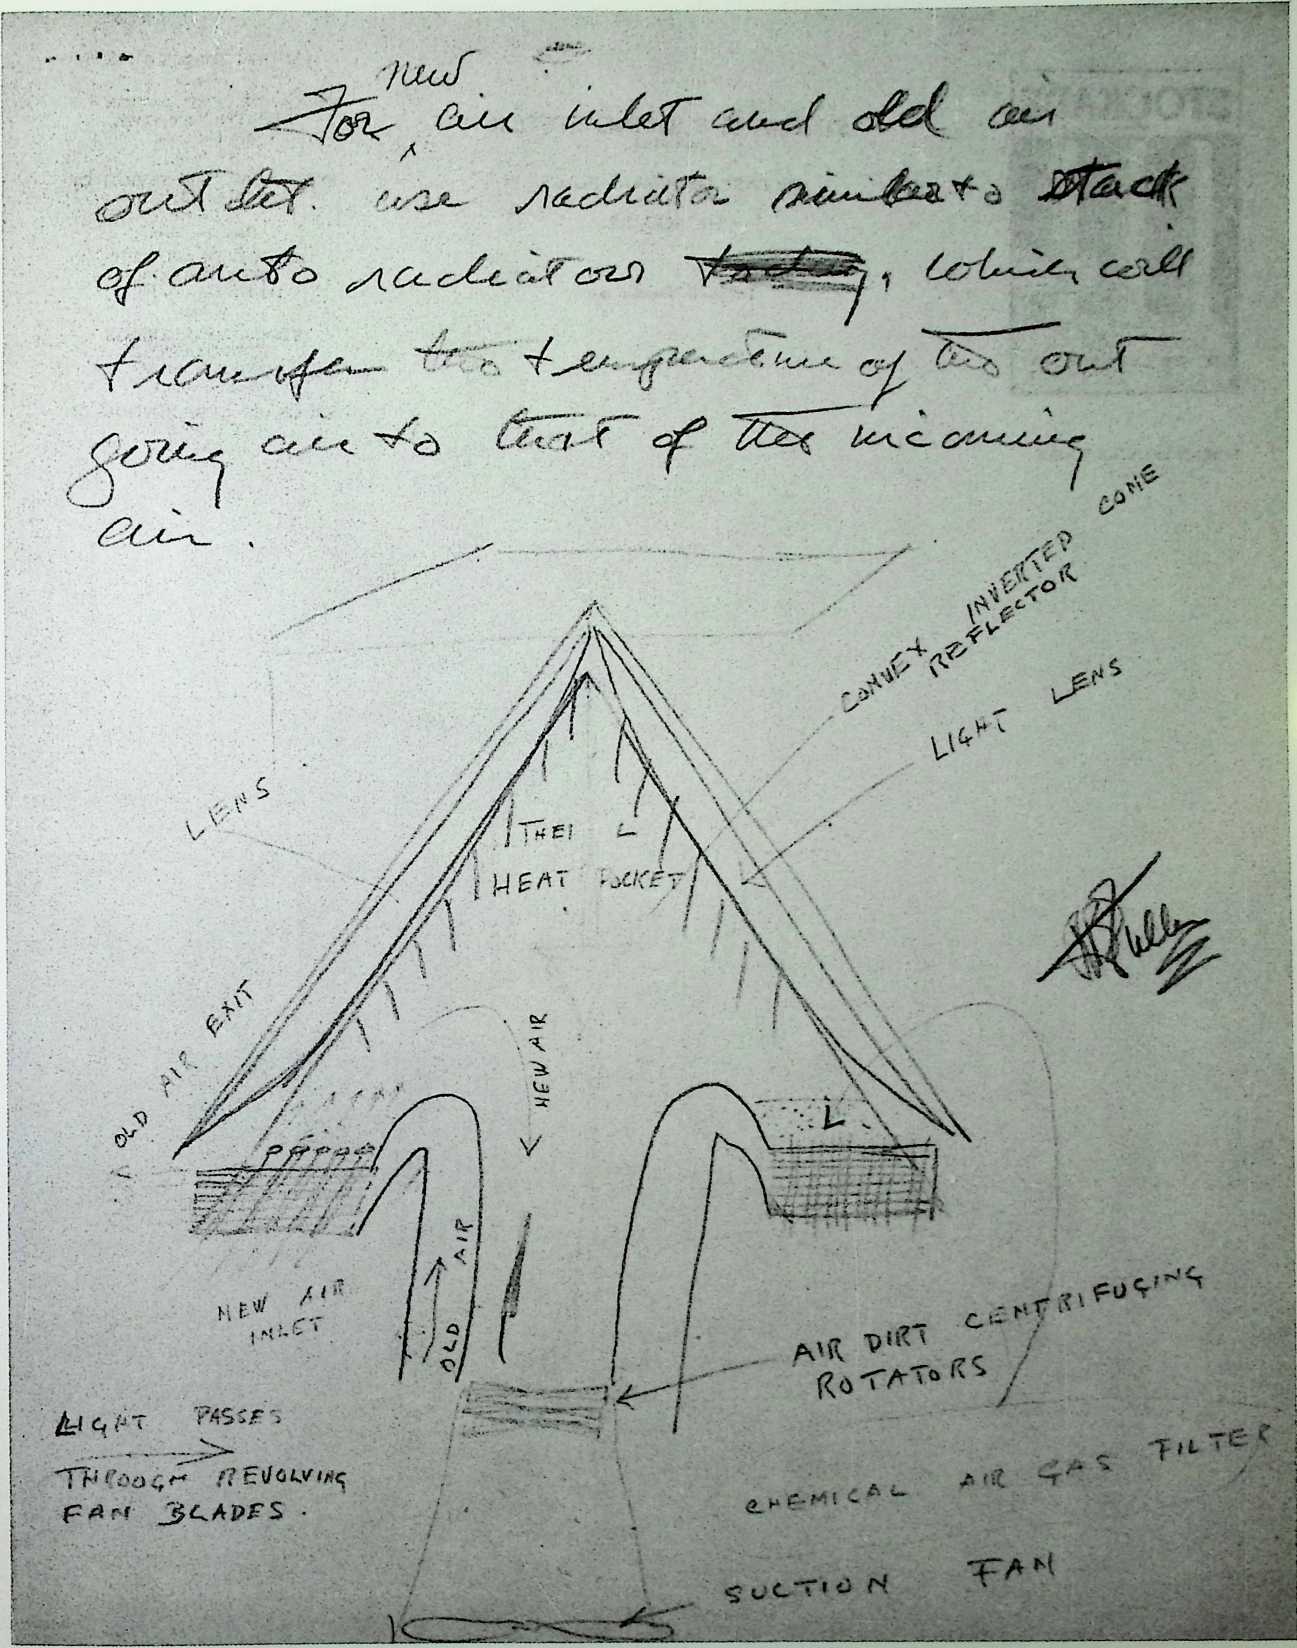 new
For air inlet and old air
outlet. use radiator similar to stack
of auto radiators, which will
transfer the temperature of the out
going air to that of the incoming
air.
CONVEX INVERTED CONE
REFLECTOR
LIGHT LENS
LENS
L
HEAT POCKET
OLD AIR EXIT
NEW AIR
L
OLD AIR
NEW AIR
INLET
AIR DIRT CENTRIFUGING
ROTATORS
LIGHT PASSES
THROUGH REVOLVING
FAN BLADES.
CHEMICAL AIR GAS FILTER
SUCTION FAN